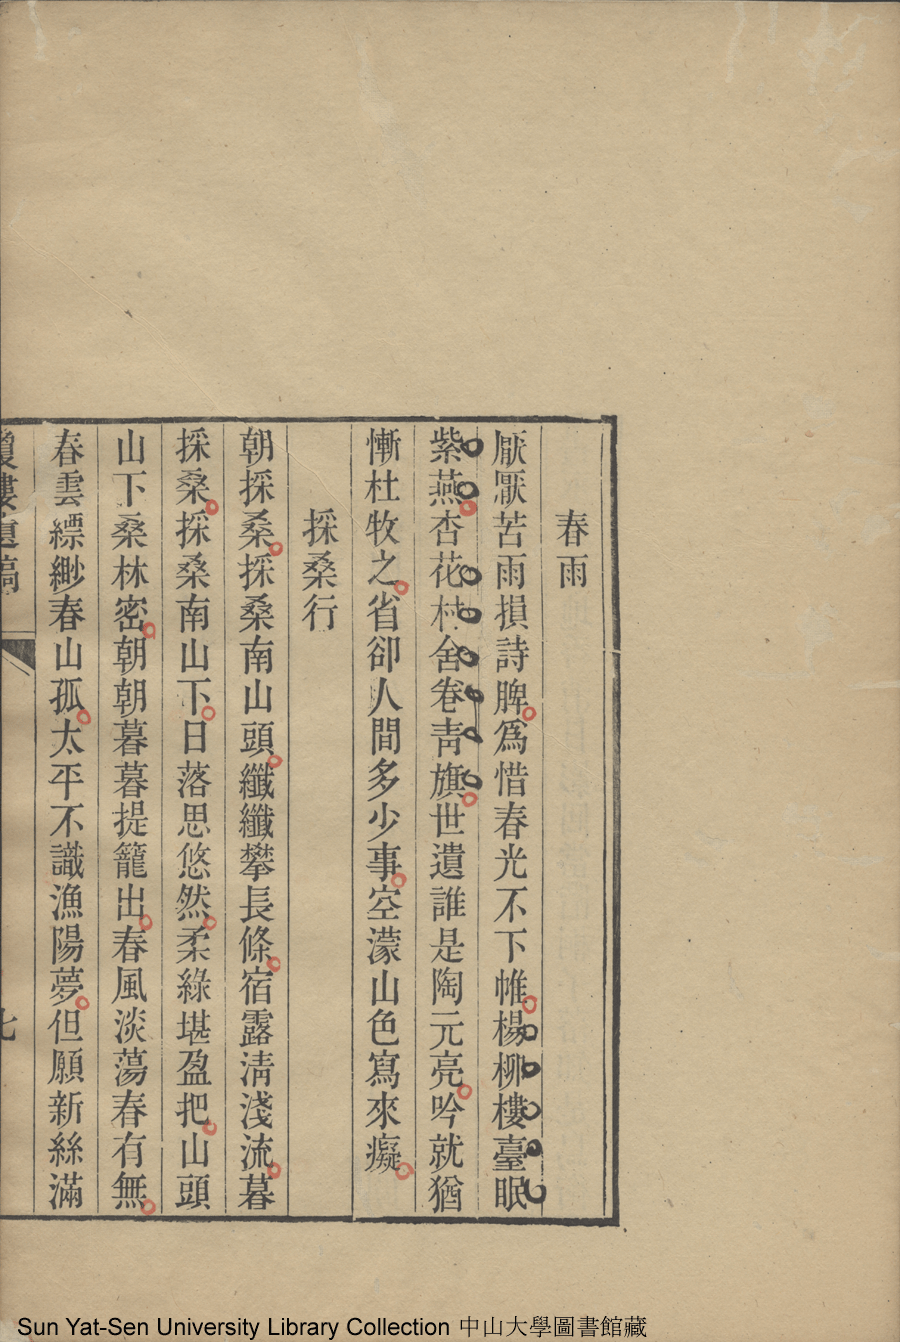 春雨
厭厭苦雨損詩脾爲惜春光不下帷楊柳樓臺眠
紫燕杏花村舍卷靑旗世遺誰是陶元亮吟就猶
慚杜牧之省卻人間多少事空濛山色寫來癡
採桑行
朝採桑採桑南山頭纖纖攀長條宿露淸淺流暮
採桑採桑南山下日落思悠然柔綠堪盈把山頭
山下桑林密朝朝暮暮提籠出春風淡蕩春有無
春雲縹緲春山孤太平不識漁陽夢但願新絲滿
Sun Yat-Sen University Library Collection 中山大學圖書館藏